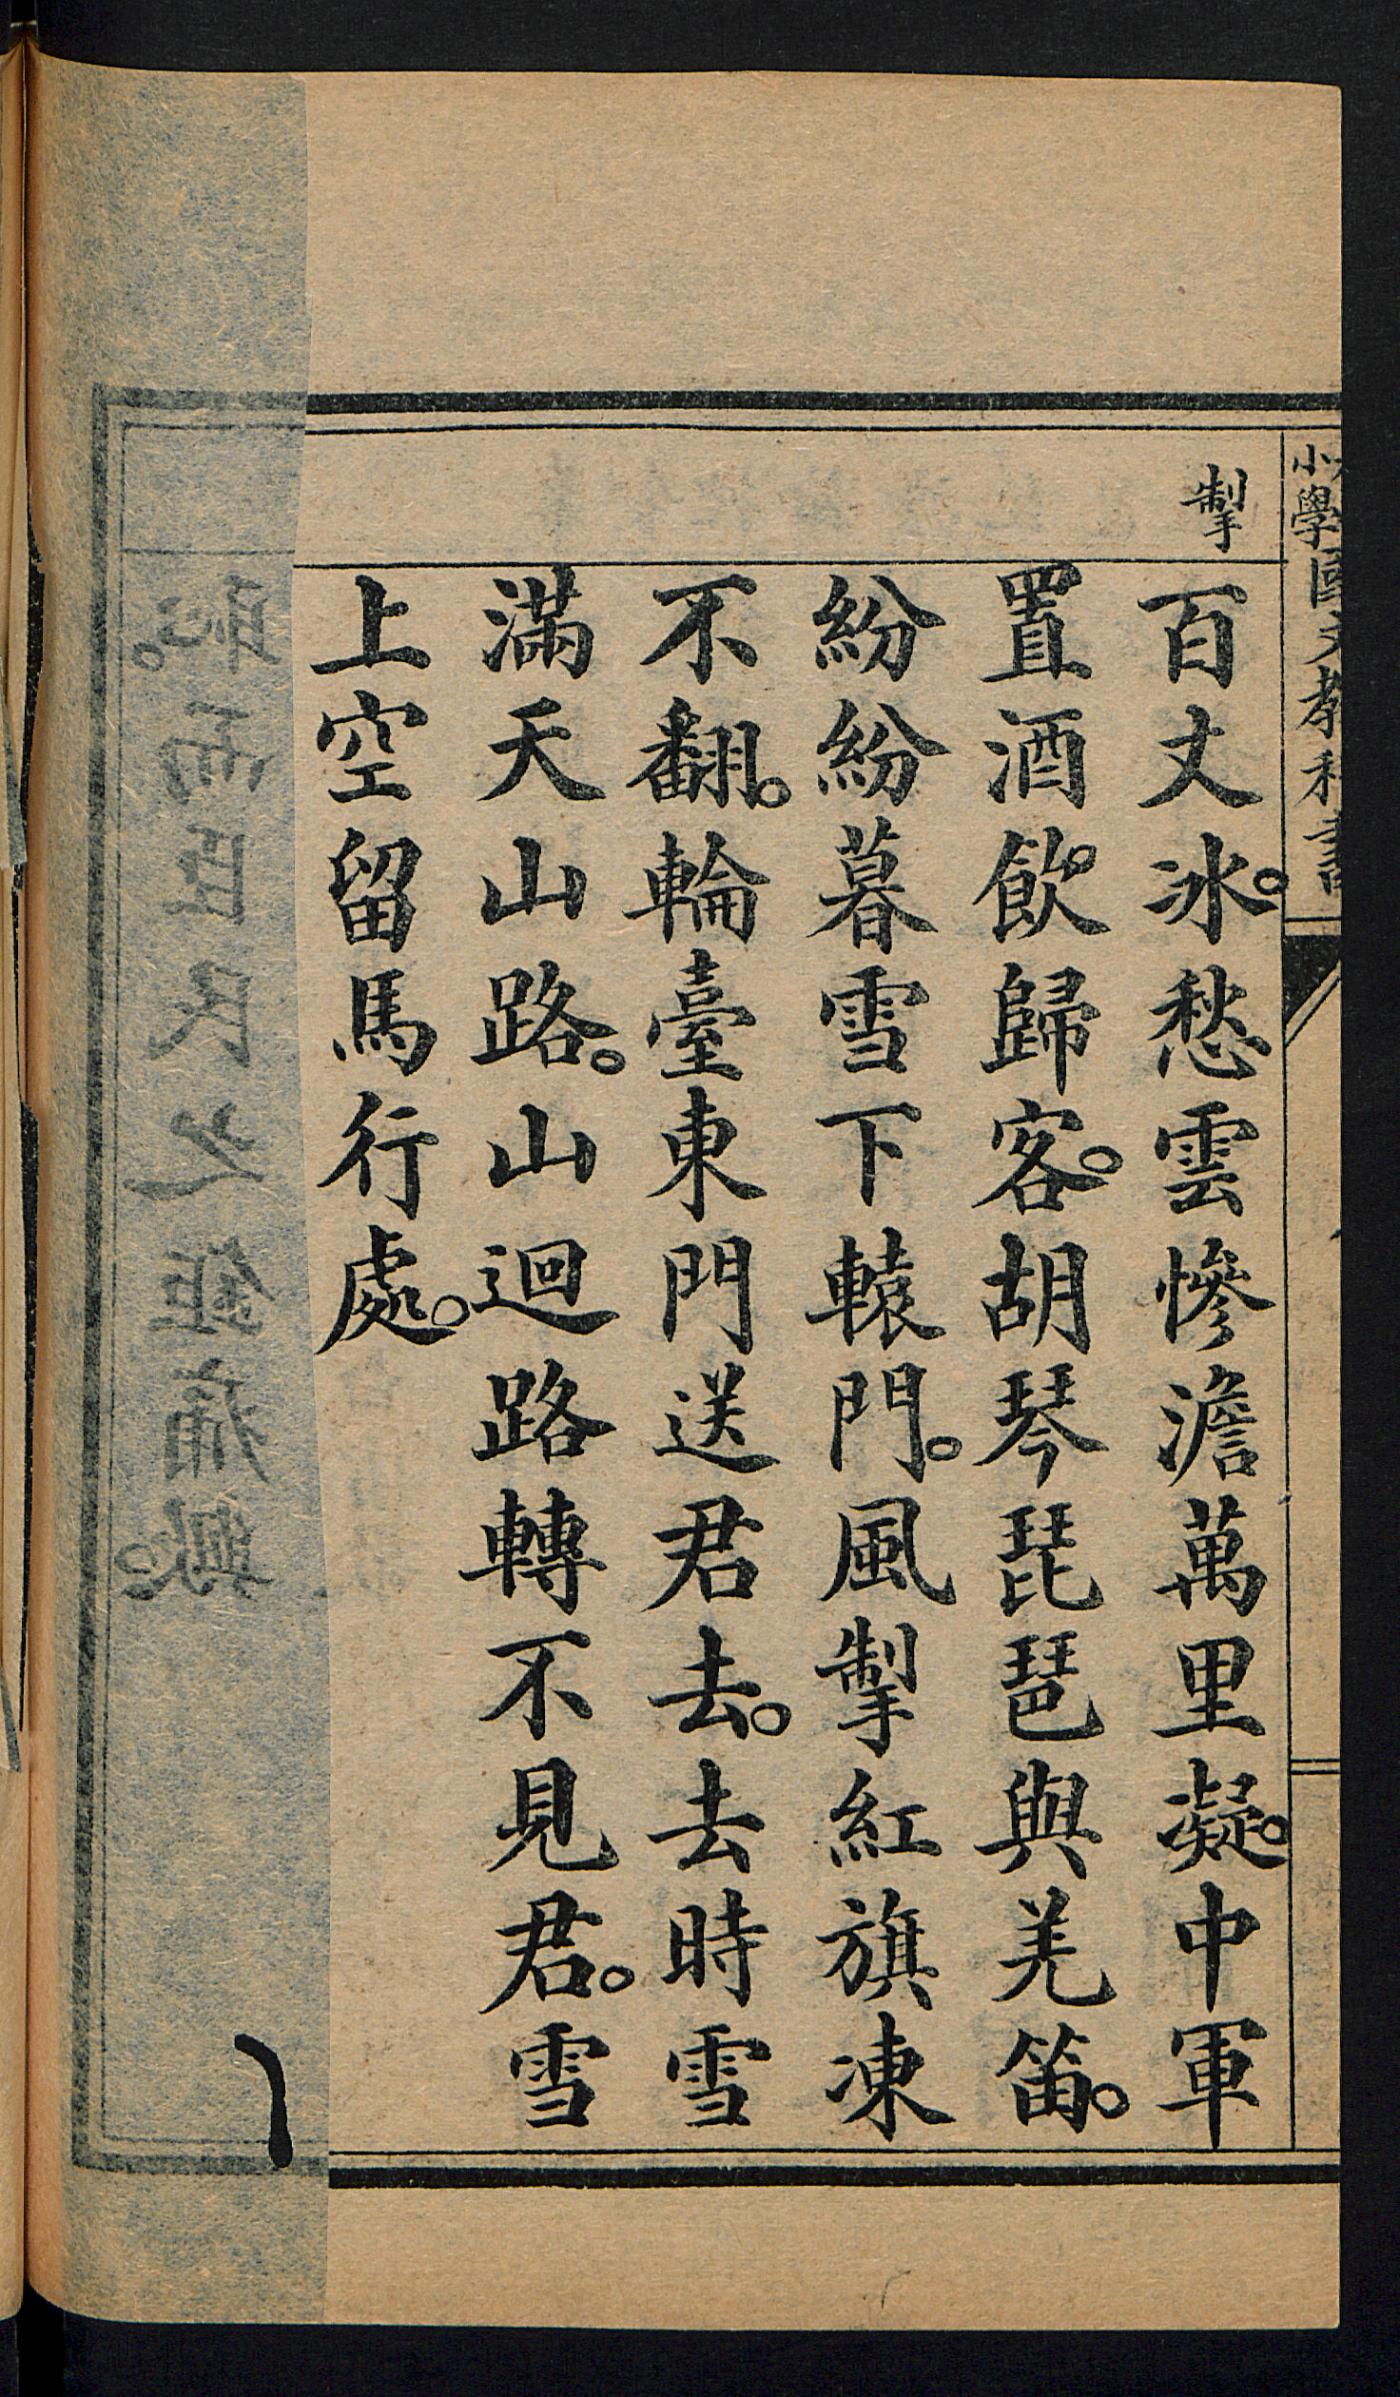 小學國文教科書
掣
百丈冰。愁雲慘澹萬里凝。中軍
置酒飲歸客。胡琴琵琶與羌笛。
紛紛暮雪下轅門。風掣紅旗凍
不翻。輪臺東門送君去。去時雪
滿天山路。山迴路轉不見君。雪
上空留馬行處。